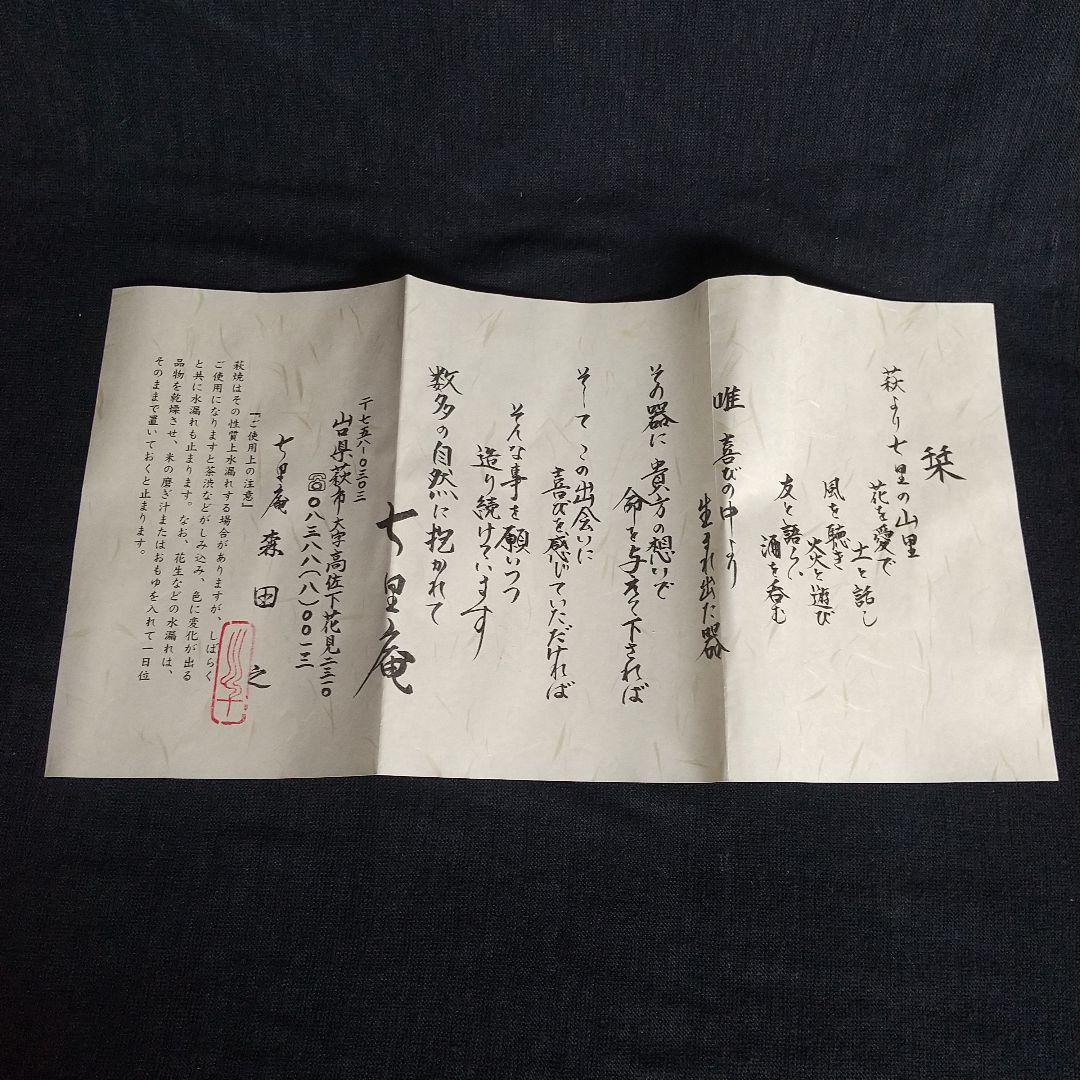 栞
萩より七里の山里
花を愛で
土と話し
風を聴き
炎と遊び
友と語らい
酒を呑む
唯 喜びの中より
生まれ出た器
その器に 貴方の想いで
命を与えて下されば
そして この出会いに
喜びを感じていただければ
そんな事を願いつつ
造り続けています
数多の自然に抱かれて
七里庵
〒七五八-〇三〇三
山口県萩市大字高佐下花見二三一〇
〇八三八八(八)〇〇一三
七里庵 森田
之
「ご使用上の注意」
萩焼はその性質上水漏れする場合がありますが、しばらく
ご使用になりますと茶渋などがしみ込み、色に変化が出る
と共に水漏れも止まります。なお、花生などの水漏れは、
品物を乾燥させ、米の磨ぎ汁またはおもゆを入れて一日位
そのままで置いておくと止まります。